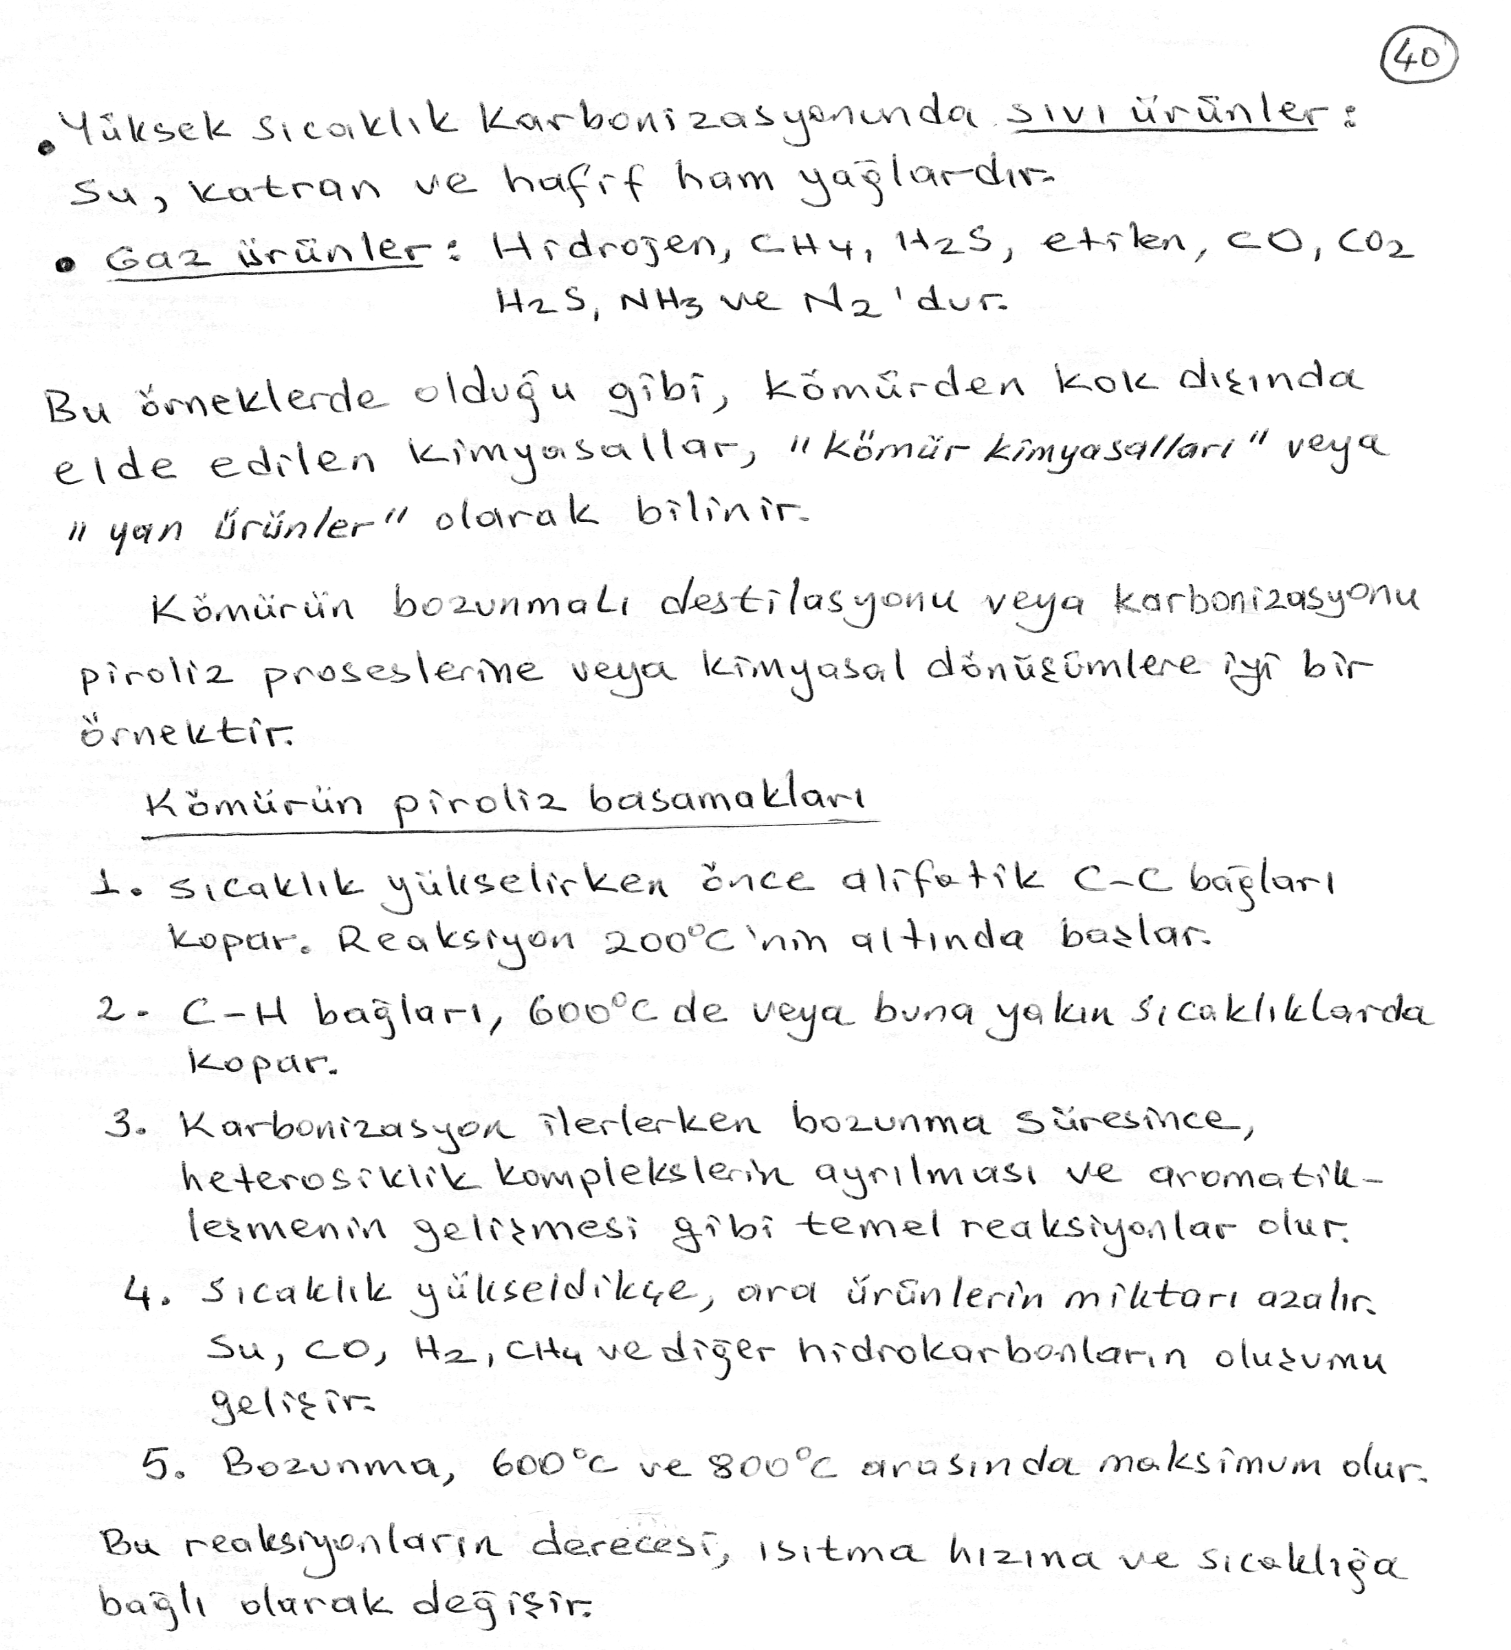 40
• Yüksek sıcaklık karbonizasyonunda sıvı ürünler:
Su, katran ve hafif ham yağlardır.
• Gaz ürünler: Hidrojen, CH4, H2S, etilen, CO, CO2
H2S, NH3 ve N2'dur.
Bu örneklerde olduğu gibi, kömürden kok dışında
elde edilen kimyasallar, "kömür kimyasalları" veya
"yan ürünler" olarak bilinir.
Kömürün bozunmalı destilasyonu veya karbonizasyonu
piroliz proseslerine veya kimyasal dönüşümlere iyi bir
örnektir.
Kömürün piroliz basamakları
1. Sıcaklık yükselirken önce alifatik C-C bağları
kopar. Reaksiyon 200°C'nin altında başlar.
2. C-H bağları, 600°C de veya buna yakın sıcaklıklarda
kopar.
3. Karbonizasyon ilerlerken bozunma süresince,
heterosiklik komplekslerin ayrılması ve aromatik-
leşmenin gelişmesi gibi temel reaksiyonlar olur.
4. Sıcaklık yükseldikçe, ara ürünlerin miktarı azalır.
Su, CO, H2, CH4 ve diğer hidrokarbonların oluşumu
gelişir.
5. Bozunma, 600°C ve 800°C arasında maksimum olur.
Bu reaksiyonların derecesi, ısıtma hızına ve sıcaklığa
bağlı olarak değişir.